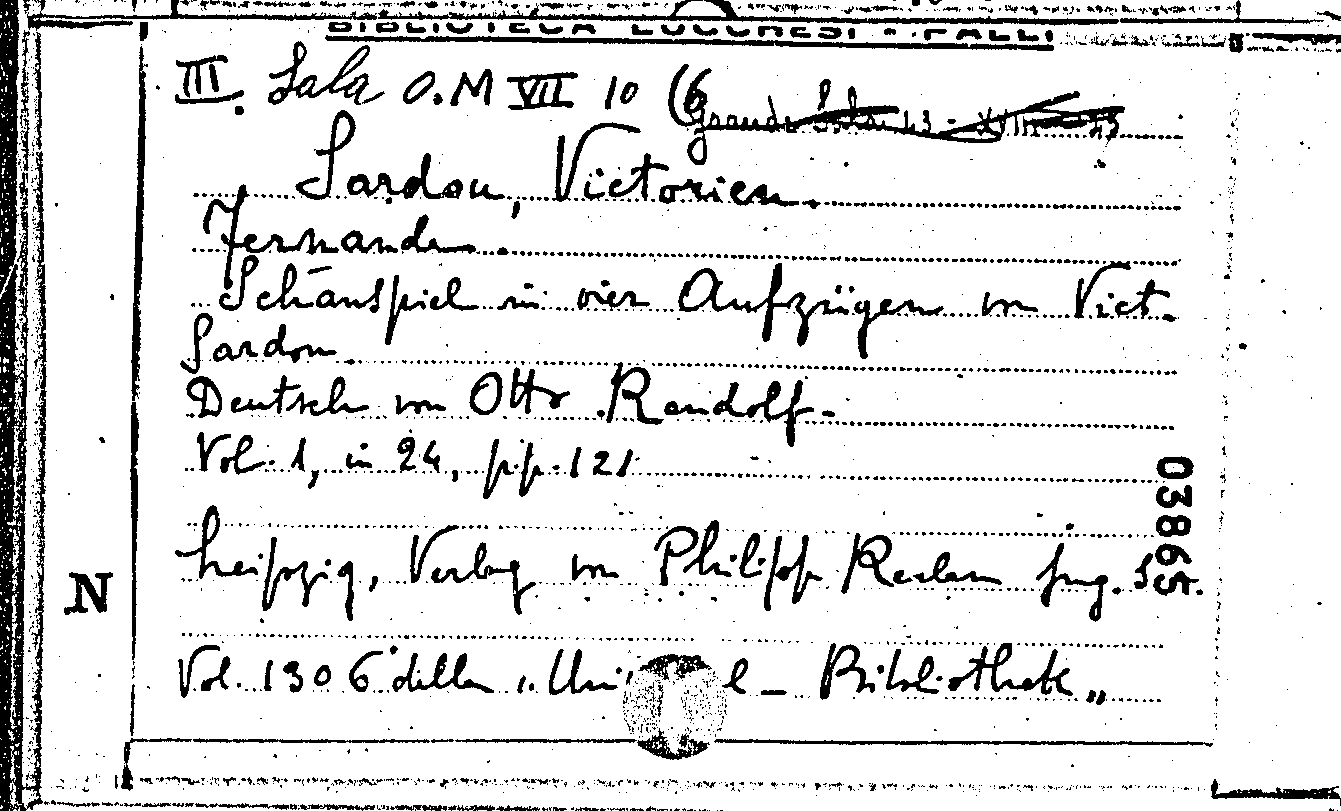 BIBLIOTECA LUCCHESI - PALLI
III. Sala O.M VII 10 (6
Grande Sala 43 - XVIII - 43
Sardou, Victorien.
Fernande.
Schauspiel in vier Aufzügen von Vict.
Sardou.
Deutsch von Otto Randolf.
Vol. 1, in 24, pp. 121
Leipzig, Verlag von Philipp Reclam jug. S.
Vol. 1306 della „Uni l - Bibliothek„
03865
N